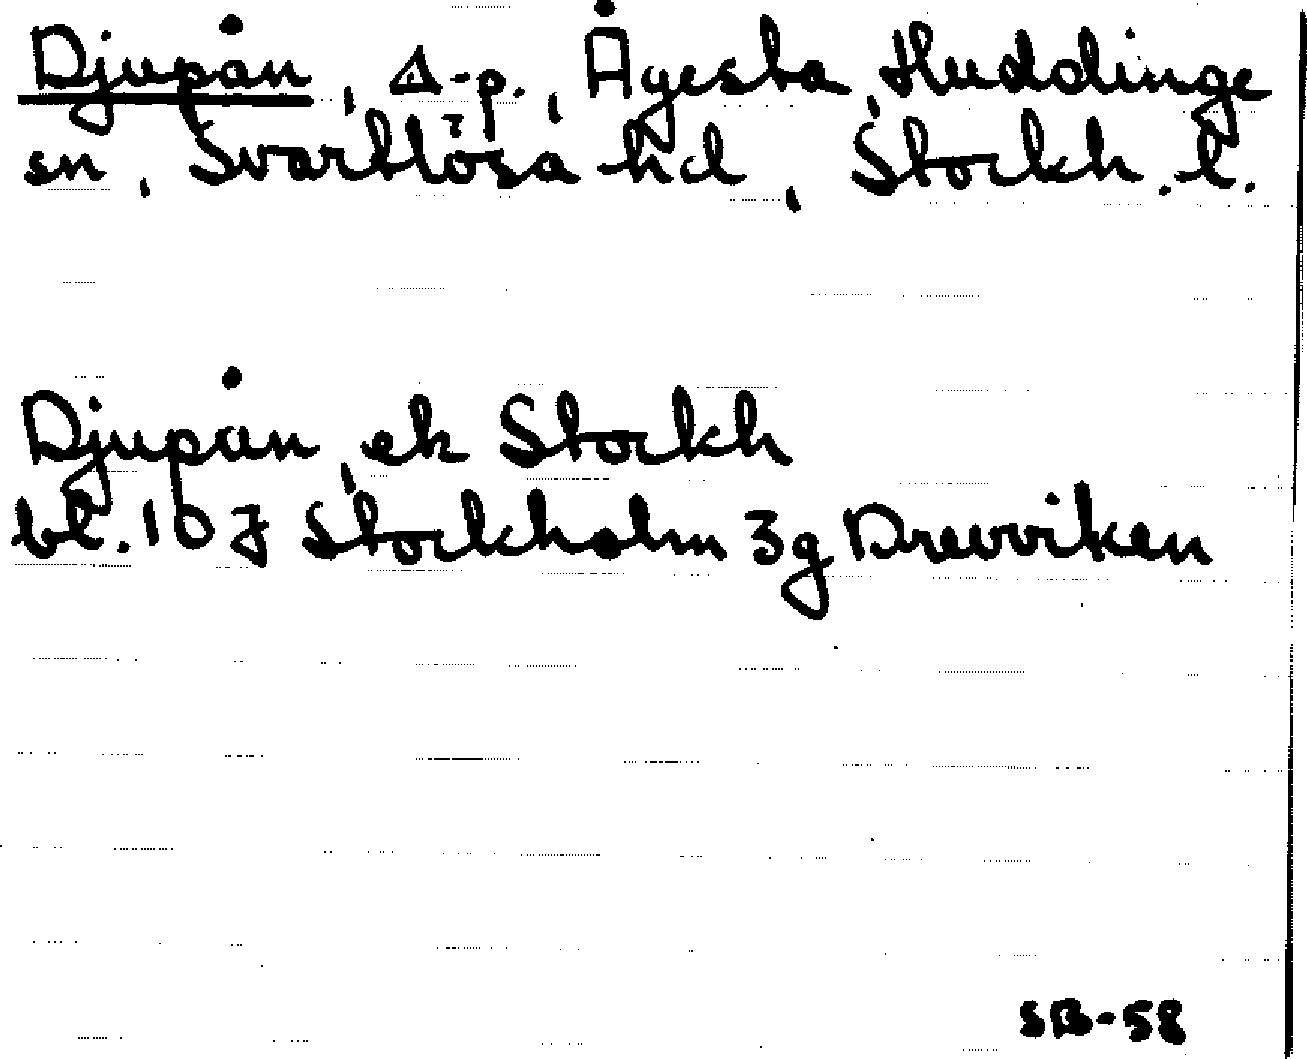 Djupån, Δ-p., Ågesta, Huddinge
sn, Svartlösa hd, Stockh. l.
Djupån, ek Stockh
bl. 10 J Stockholm 3g Drevviken
SB-58